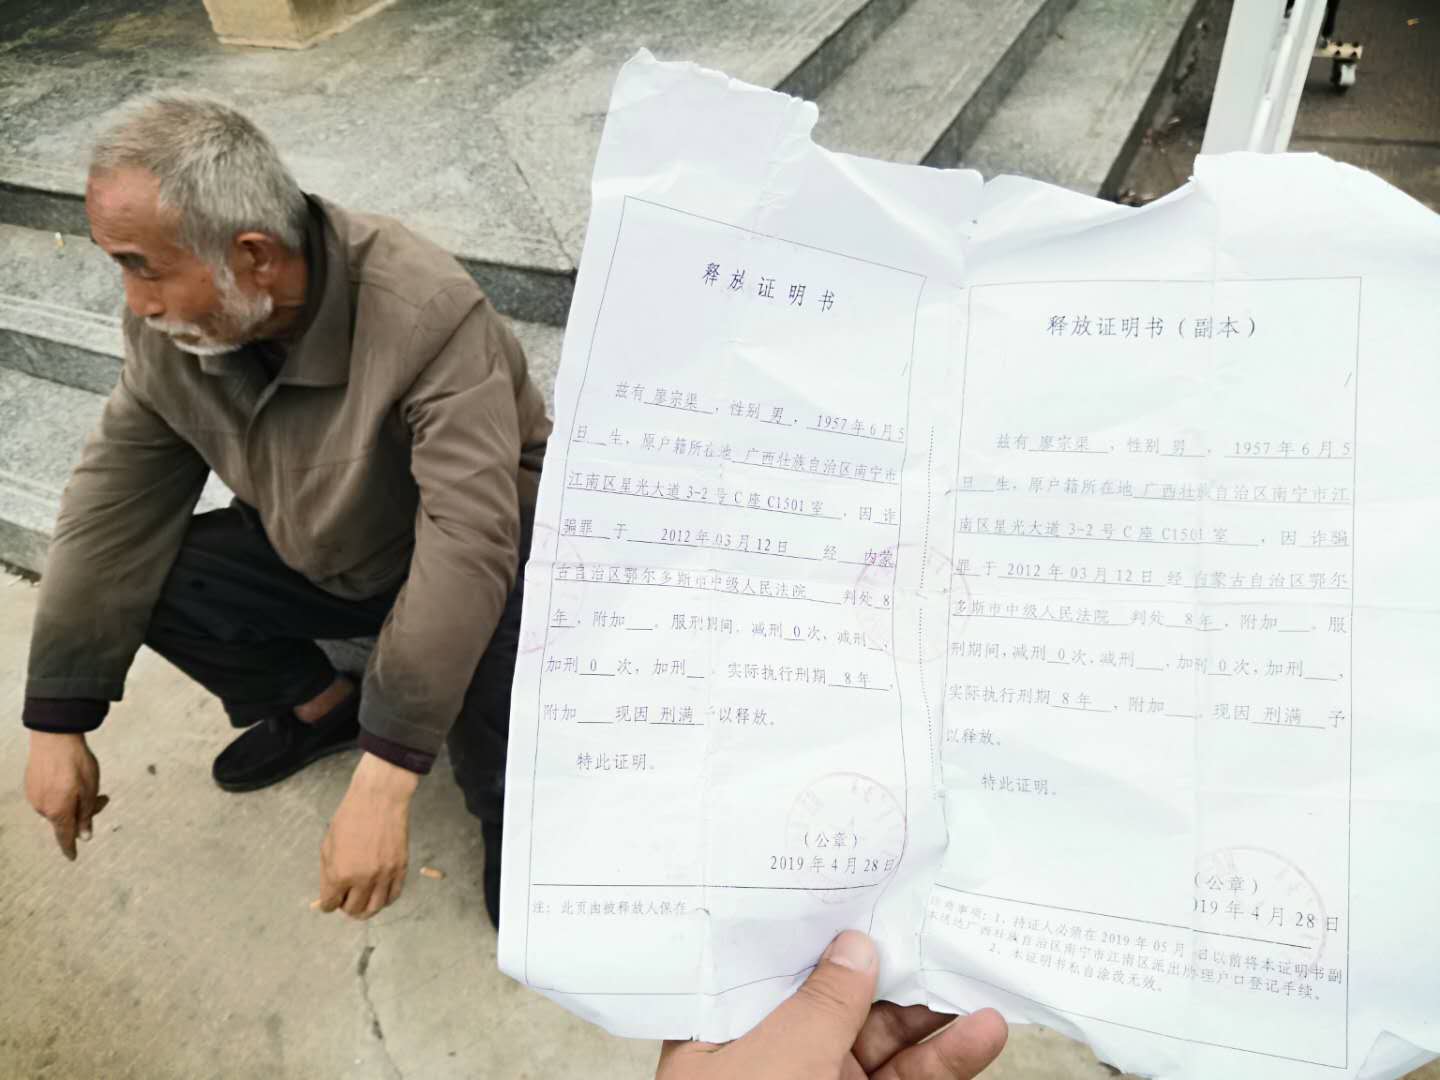 释放证明书
兹有 廖宗渠 ，性别 男 ， 1957年6月5
日 生，原户籍所在地 广西壮族自治区南宁市
江南区星光大道3-2号C座C1501室 ，因 诈
骗罪 于 2012年03月12日 经 内蒙
古自治区鄂尔多斯市中级人民法院 判处 8
年 ，附加 。服刑期间，减刑 0 次，减刑 ，
加刑 0 次，加刑 ，实际执行刑期 8年 ，
附加 现因 刑满 予以释放。
特此证明。
（公章）
2019年4月28日
注：此页由被释放人保存
释放证明书（副本）
兹有 廖宗渠 ，性别 男 ， 1957年6月5
日 生，原户籍所在地 广西壮族自治区南宁市江
南区星光大道3-2号C座C1501室 ，因 诈骗
罪 于 2012年03月12日 经 内蒙古自治区鄂尔
多斯市中级人民法院 判处 8年 ，附加 。服
刑期间，减刑 0 次，减刑 ，加刑 0 次，加刑 ，
实际执行刑期 8年 ，附加 。现因 刑满 予
以释放。
特此证明。
（公章）
2019年4月28日
注意事项：1、持证人必须在2019年05月 日以前将本证明书副
本送达广西壮族自治区南宁市江南区派出所办理户口登记手续。
2、本证明书私自涂改无效。